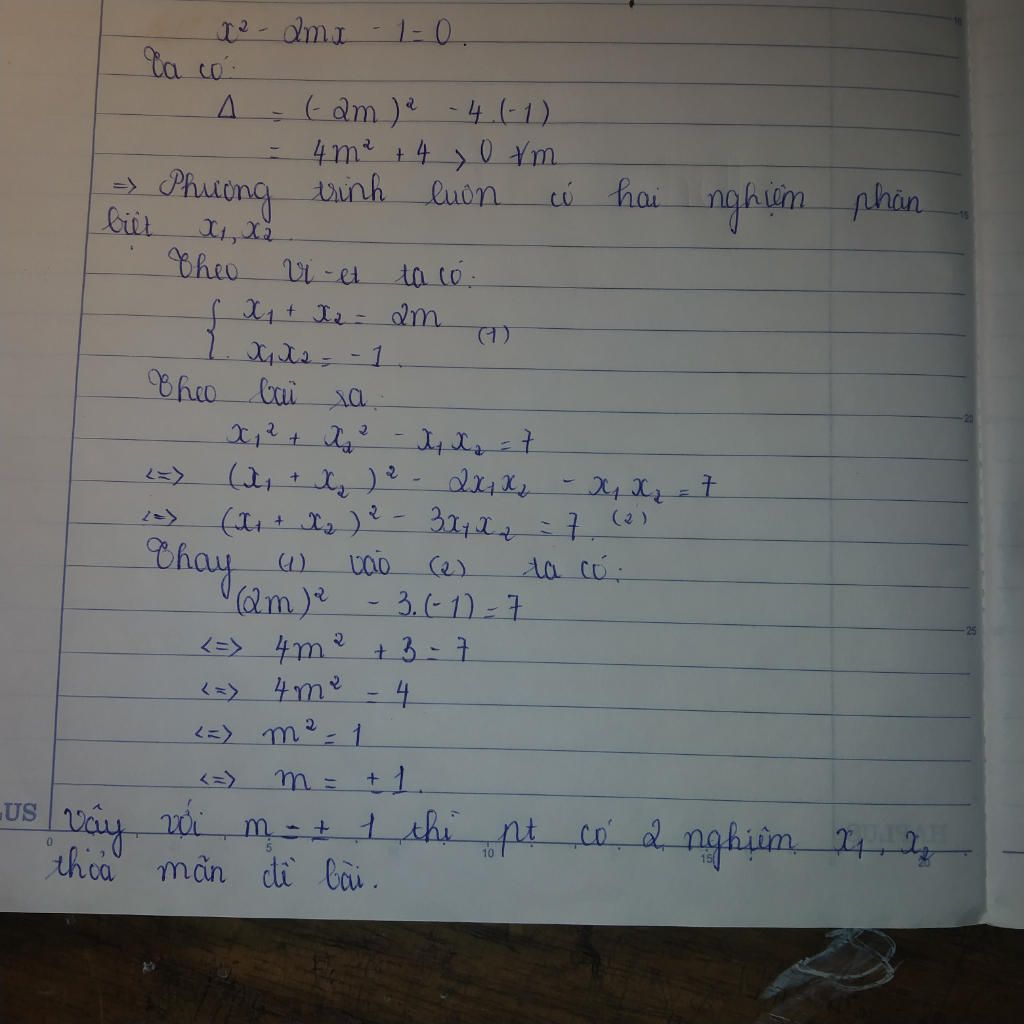 x² - 2mx - 1 = 0.
Ta có:
Δ = (-2m)² - 4.(-1)
= 4m² + 4 > 0 ∀m
=> Phương trình luôn có hai nghiệm phân
biệt x₁, x₂
Theo Vi-et ta có:
{ x₁ + x₂ = 2m
x₁x₂ = -1. (1)
Theo bài ra:
x₁² + x₂² - x₁x₂ = 7
<=> (x₁ + x₂)² - 2x₁x₂ - x₁x₂ = 7
<=> (x₁ + x₂)² - 3x₁x₂ = 7. (2)
Thay (1) vào (2) ta có:
(2m)² - 3.(-1) = 7
<=> 4m² + 3 = 7
<=> 4m² = 4
<=> m² = 1
<=> m = ±1.
Vậy với m = ±1 thì pt có 2 nghiệm x₁, x₂
thoả mãn đề bài.